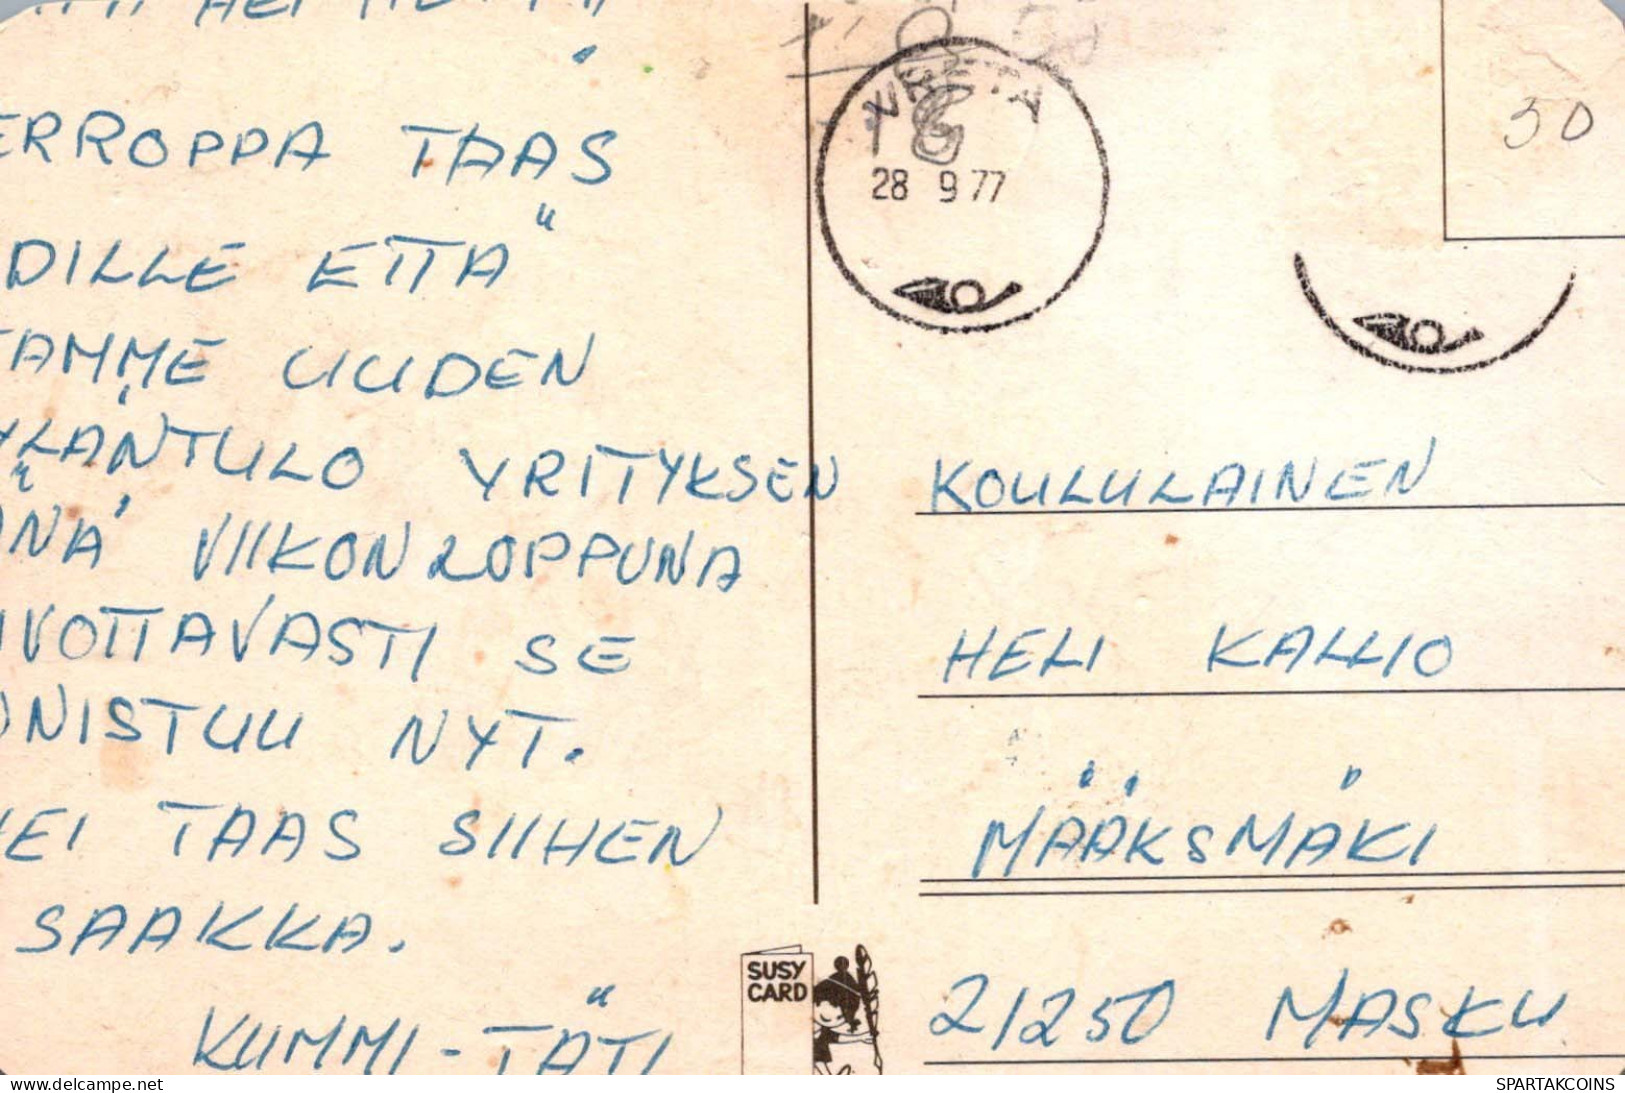 HEI
ERROPPA TAAS
DILLE ETTÄ
TAMME UUDEN
YLÄNTULO YRITYKSEN
ÄNÄ VIIKONLOPPUNA
IVOTTAVASTI SE
ONISTUU NYT.
HEI TAAS SIIHEN
SAAKKA.
KUMMI-TÄTI
28 9 77
50
KOULULAINEN
HELI KALLIO
MÄÄKSMÄKI
21250 MASKU
SUSY
CARD
https://www.delcampe.net
SPARTAKCOINS